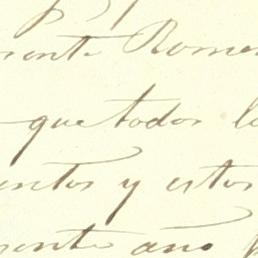 sente Rome
que todos l
entos y estos
sente año